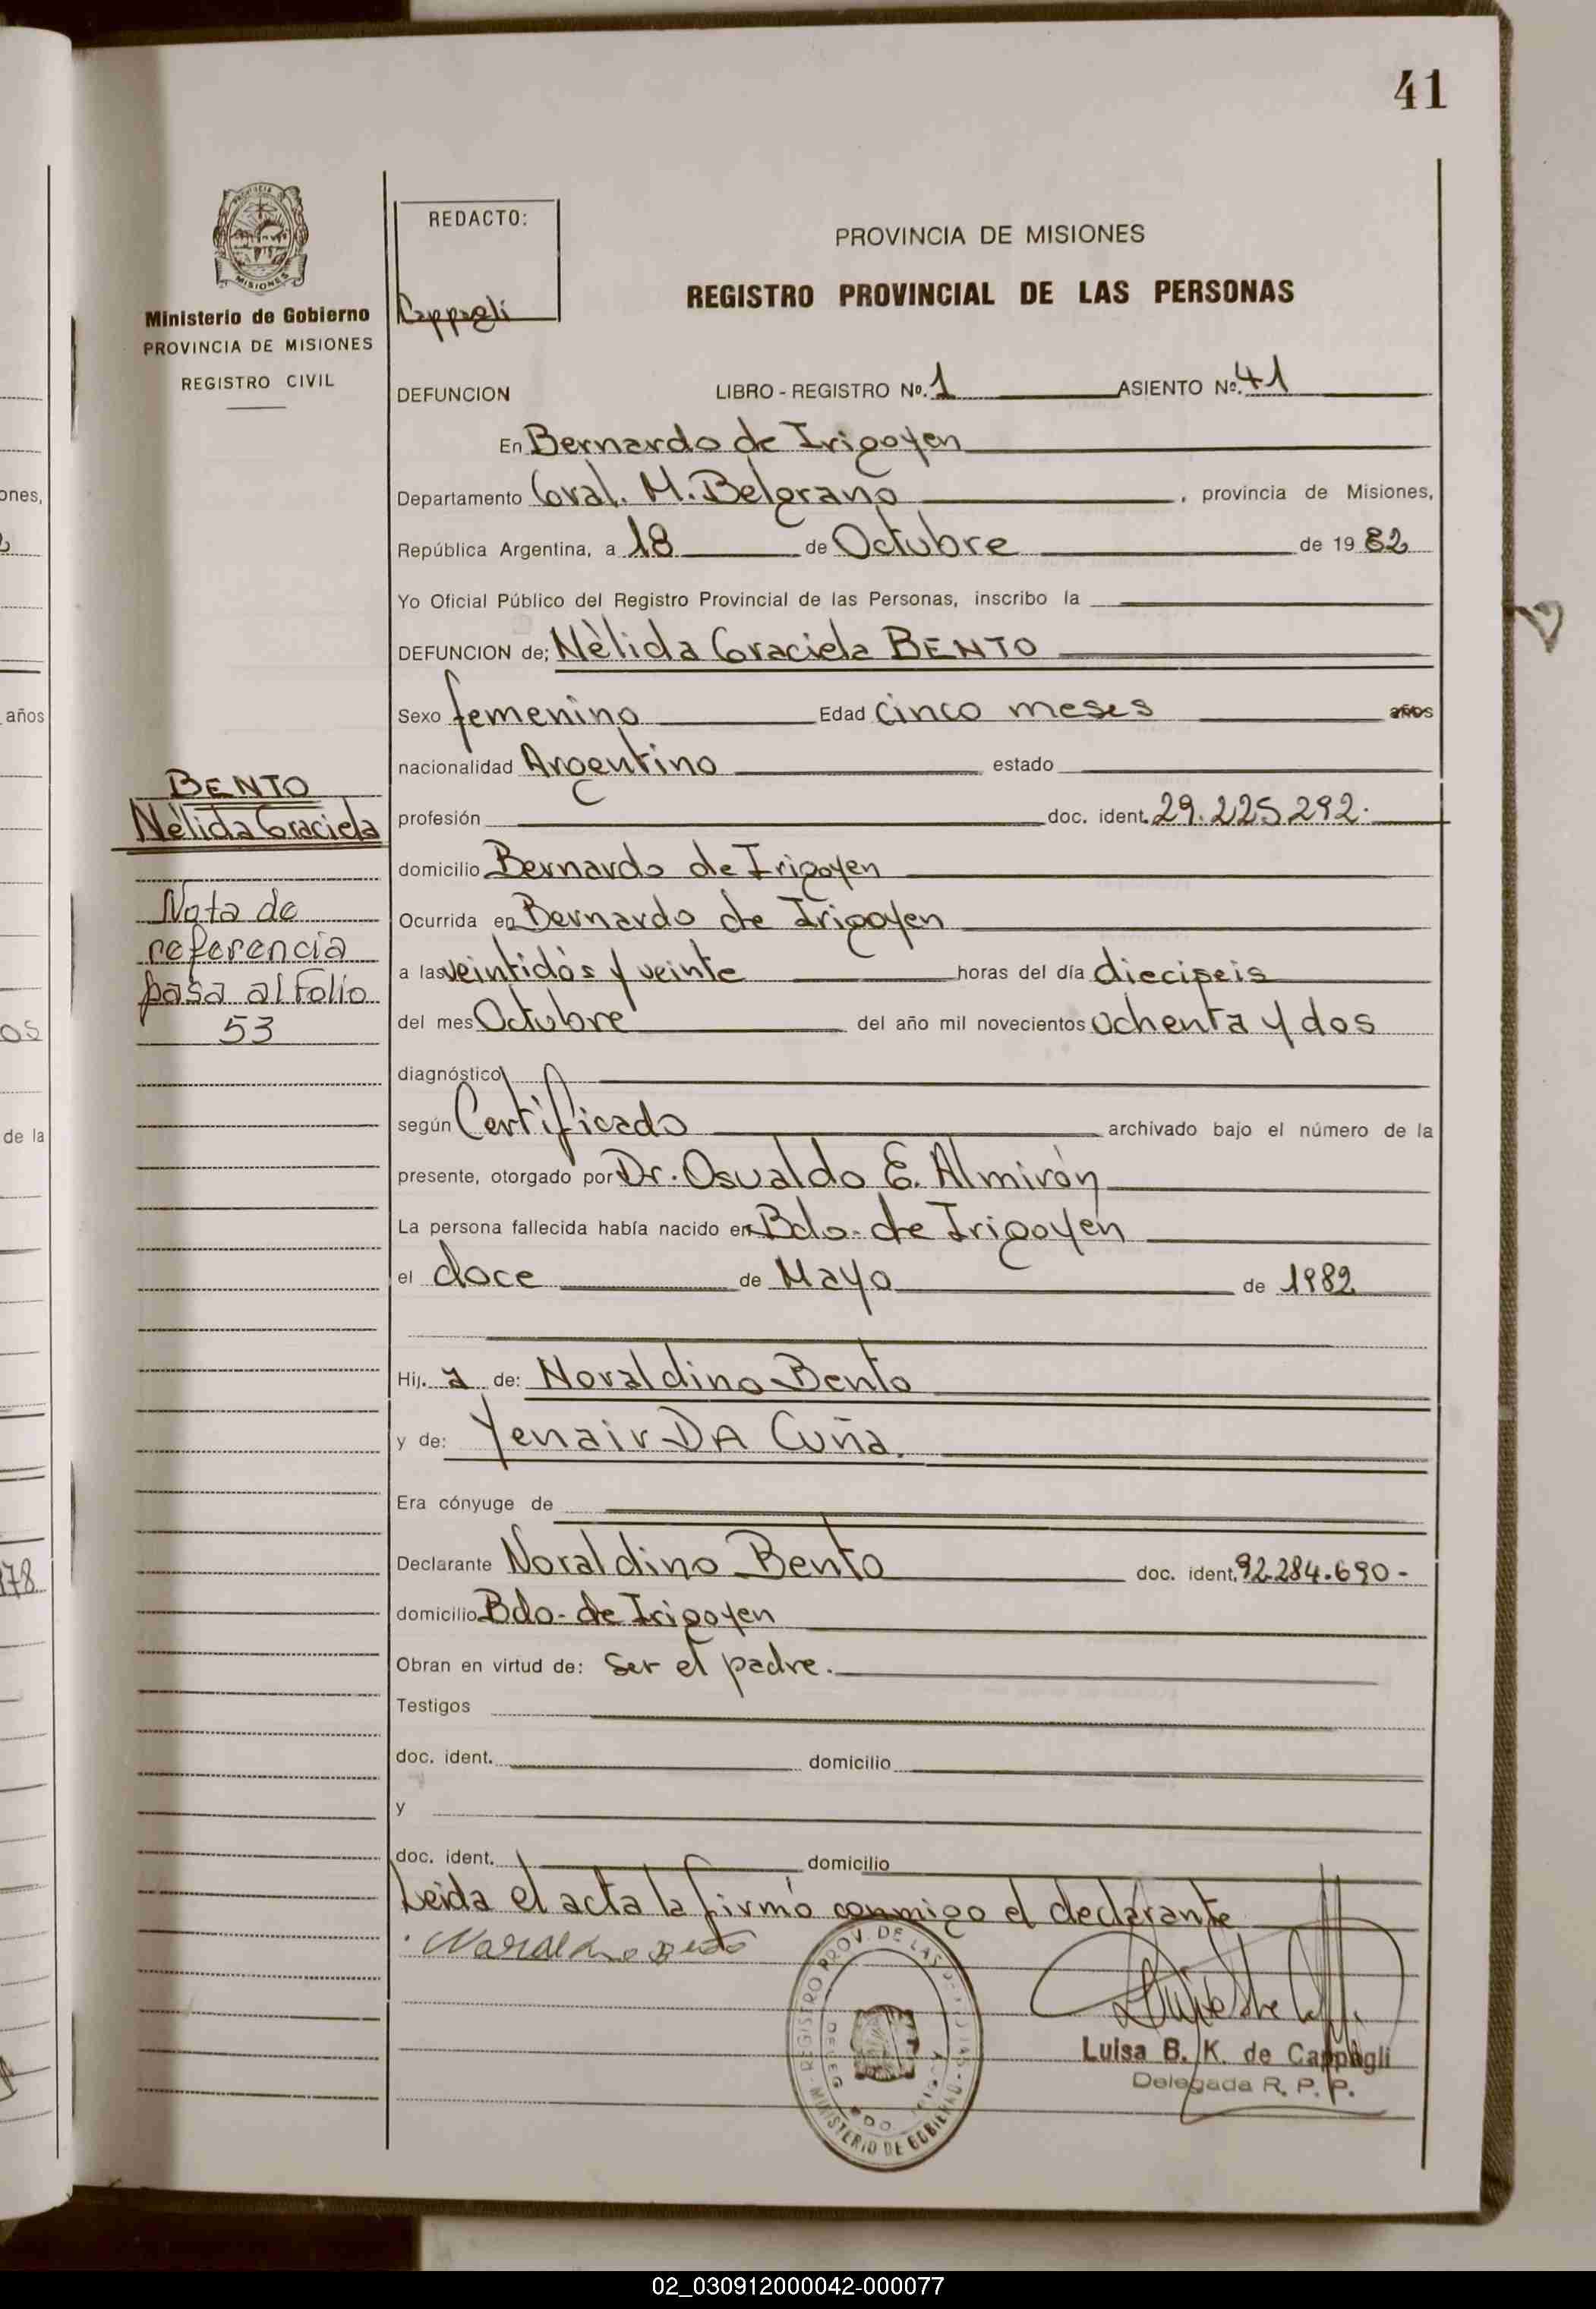 41
PROVINCIA
MISIONES
Ministerio de Gobierno
PROVINCIA DE MISIONES
REGISTRO CIVIL
REDACTO:
Cappagli
PROVINCIA DE MISIONES
REGISTRO PROVINCIAL DE LAS PERSONAS
DEFUNCION LIBRO - REGISTRO No. 1 ASIENTO Nº. 41
En Bernardo de Irigoyen
Departamento Gral. M. Belgrano , provincia de Misiones,
República Argentina, a 18 de Octubre de 19 82
Yo Oficial Público del Registro Provincial de las Personas, inscribo la
DEFUNCION de; Nèlida Graciela BENTO
Sexo femenino Edad cinco meses años
nacionalidad Argentino estado
profesión doc. ident. 29.225.292.
domicilio Bernardo de Irigoyen
Ocurrida en Bernardo de Irigoyen
a las veintidós y veinte horas del día dieciseis
del mes Octubre del año mil novecientos ochenta y dos
diagnóstico
según Certificado archivado bajo el número de la
presente, otorgado por Dr. Osvaldo E. Almirón
La persona fallecida había nacido en Bdo. de Irigoyen
el doce de Mayo de 1982
Hij. a de: Noraldino Bento
y de: Yenair DA Cuña.
Era cónyuge de
Declarante Noraldino Bento doc. ident. 92.284.690-
domicilio Bdo. de Irigoyen
Obran en virtud de: Ser el padre.
Testigos
doc. ident. domicilio
y
doc. ident. domicilio
Leida el acta la firmó conmigo el declarante
Noraldino Bento
REGISTRO PROV. DE LAS
MINISTERIO DE GOBIERNO
Luisa B. K. de Cappagli
Delegada R. P. P.
BENTO
Nèlida Graciela
Nota de
referencia
pasa al Folio
53
ones,
años
os
de la
178
02_030912000042-000077